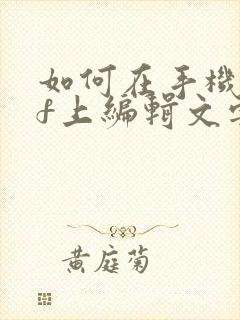 如何在手機
f上編輯文字
黃庭菊